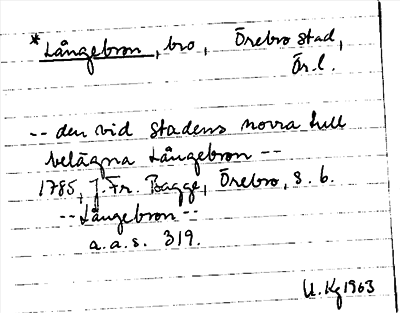 * Långebron, bro, Örebro stad,
Ör.l.
-- den vid stadens norra tull
belägna Långebron --
1785, J. Fr. Bagge, Örebro, s. 6.
-- Långebron --
a.a.s. 319.
U. Kg 1963